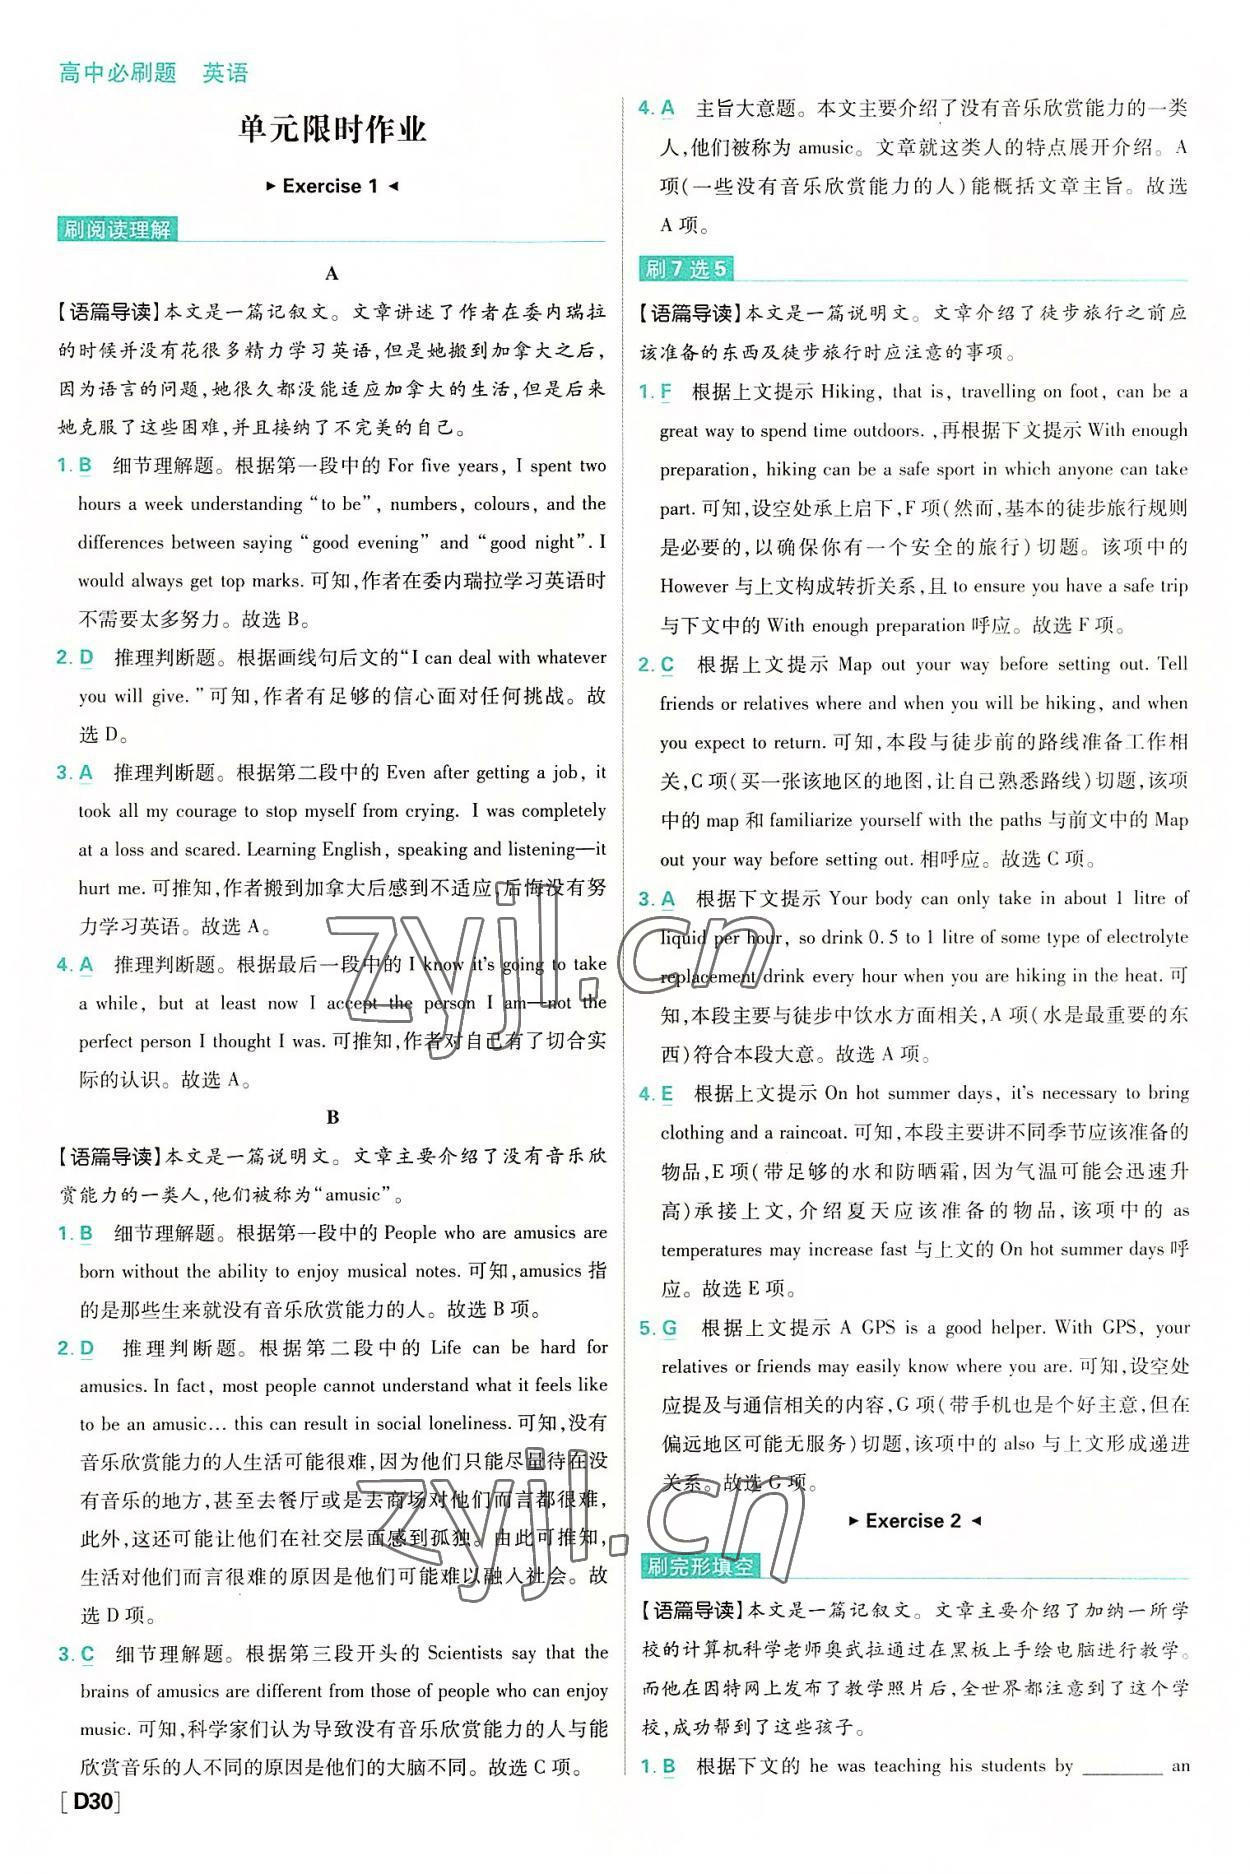 高中必刷题 英语
单元限时作业
▸ Exercise 1 ◂
刷阅读理解
A
【语篇导读】本文是一篇记叙文。文章讲述了作者在委内瑞拉
的时候并没有花很多精力学习英语,但是她搬到加拿大之后,
因为语言的问题,她很久都没能适应加拿大的生活,但是后来
她克服了这些困难,并且接纳了不完美的自己。
1. B 细节理解题。根据第一段中的 For five years, I spent two
hours a week understanding “to be”, numbers, colours, and the
differences between saying “good evening” and “good night”. I
would always get top marks. 可知,作者在委内瑞拉学习英语时
不需要太多努力。故选 B。
2. D 推理判断题。根据画线句后文的“I can deal with whatever
you will give.”可知,作者有足够的信心面对任何挑战。故
选 D。
3. A 推理判断题。根据第二段中的 Even after getting a job, it
took all my courage to stop myself from crying. I was completely
at a loss and scared. Learning English, speaking and listening—it
hurt me. 可推知,作者搬到加拿大后感到不适应,后悔没有努
力学习英语。故选 A。
4. A 推理判断题。根据最后一段中的 I know it's going to take
a while, but at least now I accept the person I am—not the
perfect person I thought I was. 可推知,作者对自己有了切合实
际的认识。故选 A。
B
【语篇导读】本文是一篇说明文。文章主要介绍了没有音乐欣
赏能力的一类人,他们被称为“amusic”。
1. B 细节理解题。根据第一段中的 People who are amusics are
born without the ability to enjoy musical notes. 可知,amusics 指
的是那些生来就没有音乐欣赏能力的人。故选 B 项。
2. D 推理判断题。根据第二段中的 Life can be hard for
amusics. In fact, most people cannot understand what it feels like
to be an amusic… this can result in social loneliness. 可知,没有
音乐欣赏能力的人生活可能很难,因为他们只能尽量待在没
有音乐的地方,甚至去餐厅或是去商场对他们而言都很难,
此外,这还可能让他们在社交层面感到孤独。由此可推知,
生活对他们而言很难的原因是他们可能难以融入社会。故
选 D 项。
3. C 细节理解题。根据第三段开头的 Scientists say that the
brains of amusics are different from those of people who can enjoy
music. 可知,科学家们认为导致没有音乐欣赏能力的人与能
欣赏音乐的人不同的原因是他们的大脑不同。故选 C 项。
[D30]
4. A 主旨大意题。本文主要介绍了没有音乐欣赏能力的一类
人,他们被称为 amusic。文章就这类人的特点展开介绍。A
项(一些没有音乐欣赏能力的人)能概括文章主旨。故选
A 项。
刷 7 选 5
【语篇导读】本文是一篇说明文。文章介绍了徒步旅行之前应
该准备的东西及徒步旅行时应注意的事项。
1. F 根据上文提示 Hiking, that is, travelling on foot, can be a
great way to spend time outdoors. ,再根据下文提示 With enough
preparation, hiking can be a safe sport in which anyone can take
part. 可知,设空处承上启下,F 项(然而,基本的徒步旅行规则
是必要的,以确保你有一个安全的旅行)切题。该项中的
However 与上文构成转折关系,且 to ensure you have a safe trip
与下文中的 With enough preparation 呼应。故选 F 项。
2. C 根据上文提示 Map out your way before setting out. Tell
friends or relatives where and when you will be hiking, and when
you expect to return. 可知,本段与徒步前的路线准备工作相
关,C 项(买一张该地区的地图,让自己熟悉路线)切题,该项
中的 map 和 familiarize yourself with the paths 与前文中的 Map
out your way before setting out. 相呼应。故选 C 项。
3. A 根据下文提示 Your body can only take in about 1 litre of
liquid per hour, so drink 0.5 to 1 litre of some type of electrolyte
replacement drink every hour when you are hiking in the heat. 可
知,本段主要与徒步中饮水方面相关,A 项(水是最重要的东
西)符合本段大意。故选 A 项。
4. E 根据上文提示 On hot summer days, it's necessary to bring
clothing and a raincoat. 可知,本段主要讲不同季节应该准备的
物品,E 项(带足够的水和防晒霜,因为气温可能会迅速升
高)承接上文,介绍夏天应该准备的物品,该项中的 as
temperatures may increase fast 与上文的 On hot summer days 呼
应。故选 E 项。
5. G 根据上文提示 A GPS is a good helper. With GPS, your
relatives or friends may easily know where you are. 可知,设空处
应提及与通信相关的内容,G 项(带手机也是个好主意,但在
偏远地区可能无服务)切题,该项中的 also 与上文形成递进
关系。故选 G 项。
▸ Exercise 2 ◂
刷完形填空
【语篇导读】本文是一篇记叙文。文章主要介绍了加纳一所学
校的计算机科学老师奥武拉通过在黑板上手绘电脑进行教学。
而他在因特网上发布了教学照片后,全世界都注意到了这个学
校,成功帮到了这些孩子。
1. B 根据下文的 he was teaching his students by ________ an
zyjl.cn
zyjl.cn